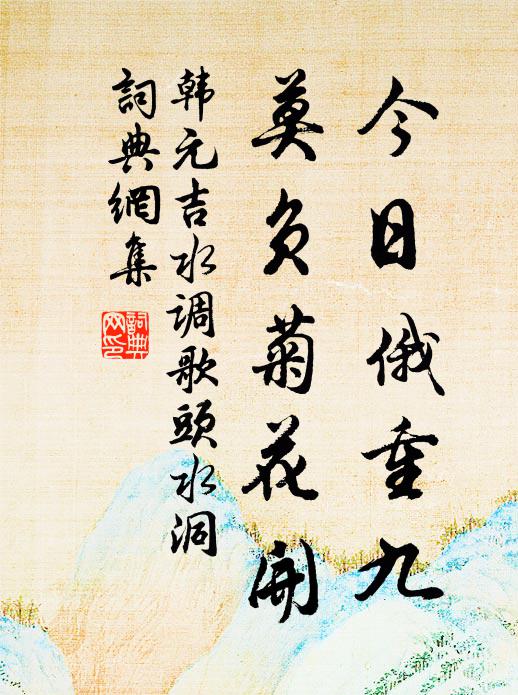 今日俄重九
莫负菊花開
韩元吉水调歌頭水洞
詞典網集
詞典網印